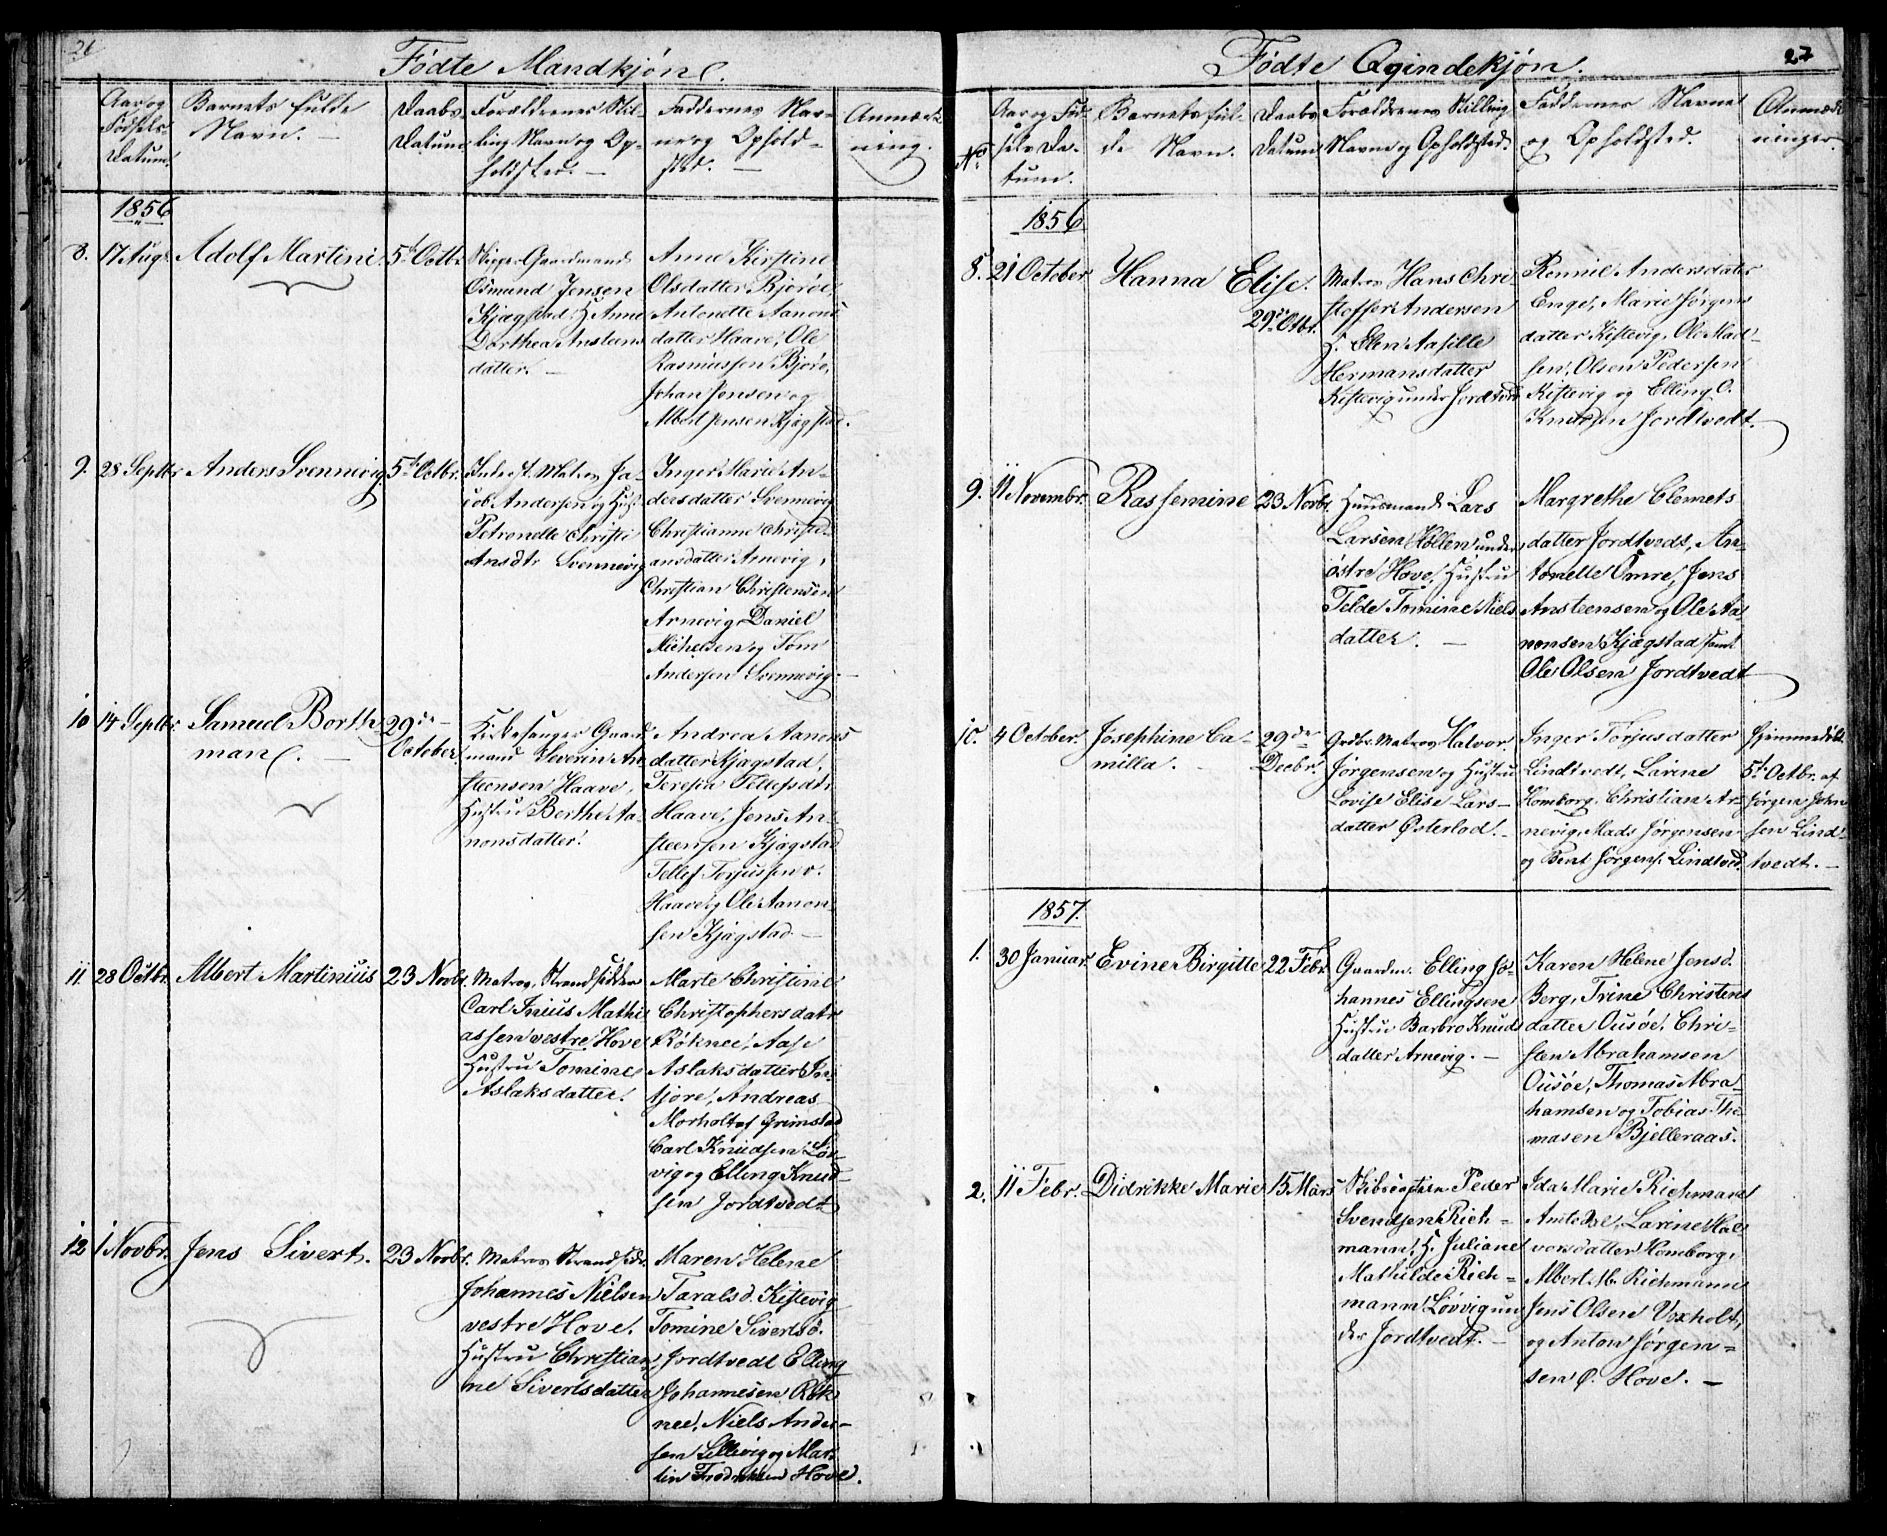 26
Fødte Mandkjøn.
Aar og
Fødsels
Datum.
Barnets fulde
Navn. —
Daabs
Datum
Forældrenes Stil-
ling Navn og Op-
holdsted. —
Faddernes Nav-
ne og Ophold-
sted. —
Anmærk
ning.
1856
8.
17 Aug.
Adolf Martin
5t Octbr.
Skipper Gaardmand
Osmund Jensen
Kjægstad H. Anne
Dorthea Ansteens
datter. —
Anne Kirstine
Olsdatter Bjorøe,
Antonette Aanons
datter Haave, Ole
Rasmussen Bjorø,
Johan Jensen og
Albert Jensen Kjægstad.
9.
28 Septbr
Anders Svennevig
5t Octbr.
Matros Ja-
cob Andersen og Hust.
Petronelle Christi
Ansdtr Svennevig
Inger Marie An-
dersdatter Svennevig
Christianne Christi-
ansdatter Arnevig,
Christian Christensen
Arnevig, Daniel
Michelsen og Tom
Andersen Svennevig. —
10
14 Septbr
Samuel Borth-
man. —
29de
October.
Kirkesanger Gaard
mand Severin An
steensen Haave,
Hustru Berthe Aa-
nonsdatter.
Andrea Aanons
datter Kjægstad,
Teresen Tellefsdtr
Haave, Jens An-
steensen Kjægstad
Tellef Torjussen v.
Haave og Ole Aanon-
sen Kjægstad. —
11.
28 Octbr.
Albert Martinius
23 Novbr.
Matros, Strandsidder
Carl Inius Mathi
assen vestre Hove
Hustru Tomine
Aslaksdatter.
Marte Christine
Christophersdatr
Røknee, Aase
Aslaksdatter In-
tjøre, Andreas
Morholt af Grimstad
Carl Knudsen Løv-
vig og Elling Knud-
sen Jordtvedt
12
1 Novbr.
Jens Sivert.
23 Novbr.
Matros Strandsidr
Johannes Nielsen
vestre Hove.
Hustru Christian
ne Sivertsdatter
Maren Helene
Taralsd. Kistevig
Tomine Sivertsd.
Jordtvedt Elling
Johannesen Røk
nee, Niels Ander-
sen Lillevig og Mar-
tin Fredriksen Hove.
27
Fødte Qvindekjøn.
No
Aar og Fød-
sels Da-
tum.
Barnets ful-
de Navn.
Daabs
Datum
Forældrenes Stilling
Navne og Opholdsted.
Faddernes Navne
og Opholdsted.
Anmærk
ninger
1856
8.
21 October
Hanna Elise.
29de Octbr.
Matros Hans Chri-
stoffer Andersen
H. Elen Aasille
Hermansdatter
Kistevig under Jordtvedt
Ronnie Andersdatter
Enge, Marie Jørgens
datter Kistevig, Ole Mad-
sen, Olsen Pedersen
Kistevig og Elling O.
Knudsen Jordtvedt.
9.
11 Novembr.
Rassemine
23 Novbr.
Huusmand Lars
Larsen Hollen under
østre Hove, Hustru
Telde Tomine Niels
datter. —
Margrethe Clemets
datter Jordtvedt, An-
tonelle Omre, Jens
Ansteensen og Ole Aa
nonsen Kjægstad samt
Ole Olsen Jordtvedt
10.
4 October.
Josephine Ca-
milla. —
29de
Decbr.
Grdbr. Matros Halvor
Jørgensen og Hustru
Lovise Elise Lars-
datter Østerlod. —
Inger Torjusdatter
Lindtvedt, Larine
Homborg, Christian Ar-
nevig, Mads Jørgensen
og Bent Jørgens. Lindtved.
Hjemmedøbt
5t Octbr. af
Jørgen John
sen Lind-
tvedt. —
1857.
1.
30 Januar.
Evine Birgitte
22 Febr.
Gaardm. Elling Jo-
hannes Ellingsen
Hustru Barbro Knuds
datter Arnevig. —
Karen Helene Jensd.
Berg, Trine Christens
datter Ousøe, Chri-
sten Abrahamsen
Ousøe, Thomas Abra-
hamsen og Tobias Tho-
masen Bjelleraas.
2.
11 Febr.
Didrikke Marie
15 Mars
Skibscaptein Peder
Svendsen Rich-
mann, H. Juliane
Mathilde Rich-
mann Løvvig un
der Jordtvedt. —
Ida Marie Richmann
Larine Hal
vorsdatter Homborg,
Albert M. Richmann
Jens Olsen Voxholt,
og Anton Jørgen-
sen Ø. Hove. —